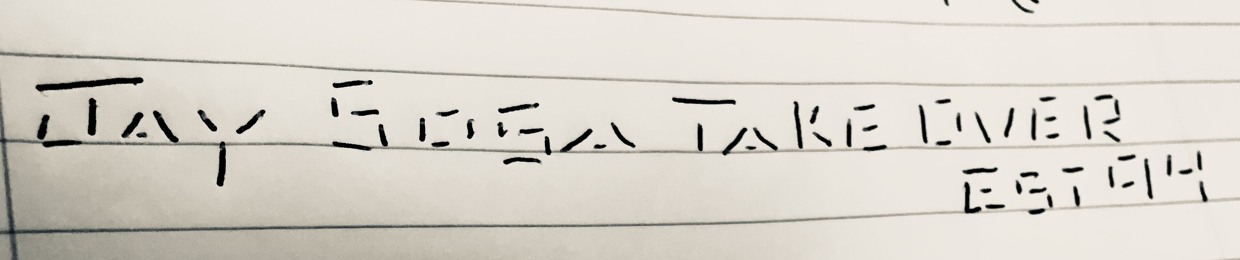 JAY SOSA TAKE OVER
EST